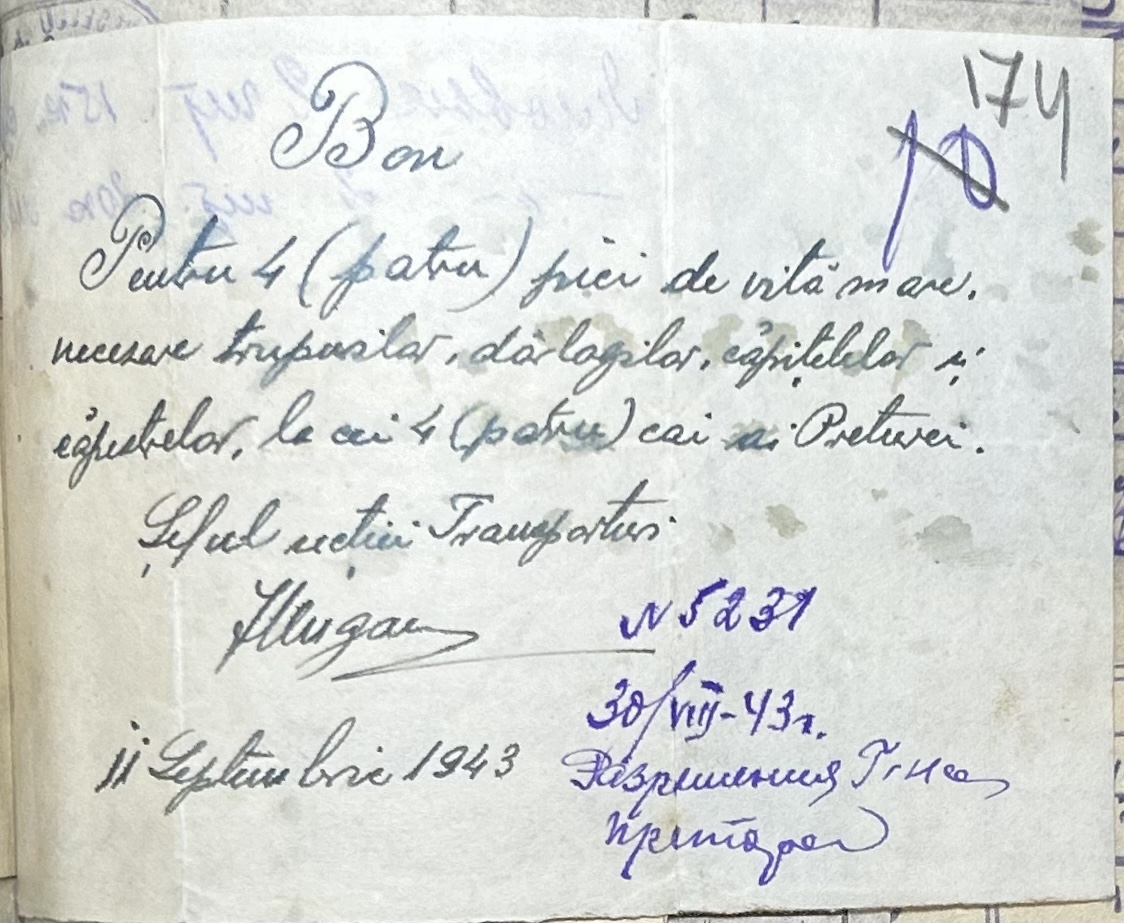 174
10
Bon
Pentru 4 (patru) piei de vită mare,
necesare trupurilor, dârlogilor, căpițelelor și
căpestrelor, la cei 4 (patru) cai ai Preturei.
Șeful secției Transporturi
11 Septembrie 1943
N 5231
30/VIII-43г.
Разрешения Г-на
претора